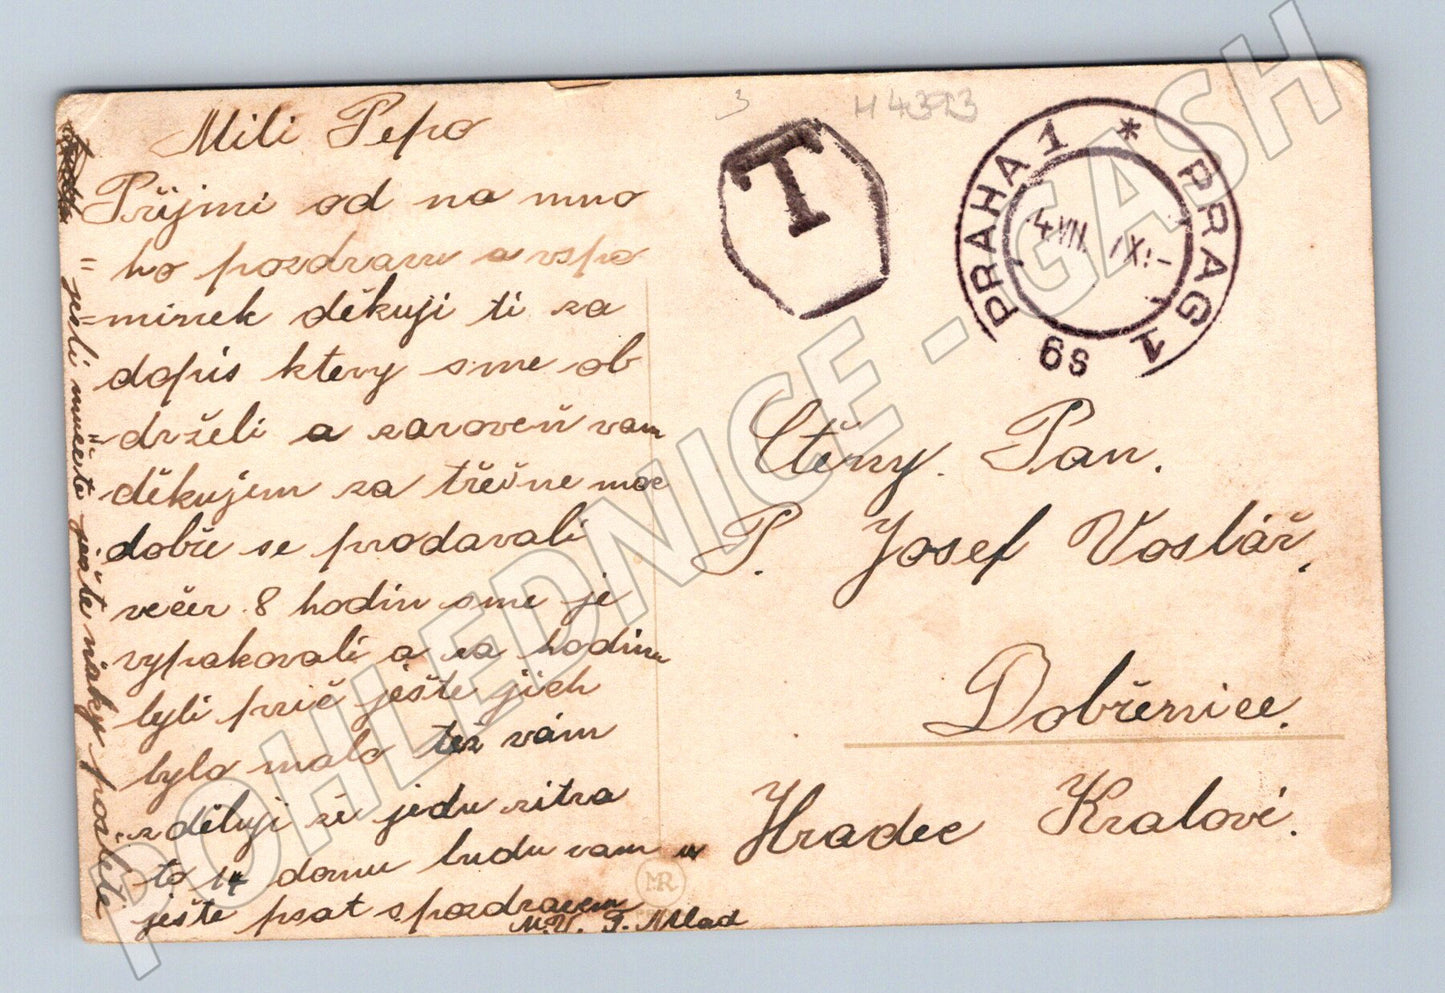 Mili Pepo
Přijmi od na mno
= ho pozdravu a vspo
= minek děkuji ti za
dopis ktery sme ob
drželi a zaroveň vam
děkujem za třešne moc
dobře se prodavali
večer 8 hodin sme je
vypakovali a za hodinu
byli prič ješte jich
bylo malo též vám
zděluji že jedu zitra
to 14 domu budu vam
ješte psat s pozdravem
M.V. F. Mlad
= jesli mužete pošlete
3
H 4393
T
PRAHA 1 * PRAG 1
6S
Ctěny. Pan.
P. Josef Vostář,
Dobřenice.
u Hradec Kralové.
MR
POHLEDNICE - GASH